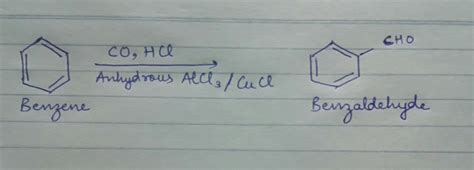 CHO
CO, HCl
Anhydrous AlCl₃ / CuCl
Benzene
Benzaldehyde